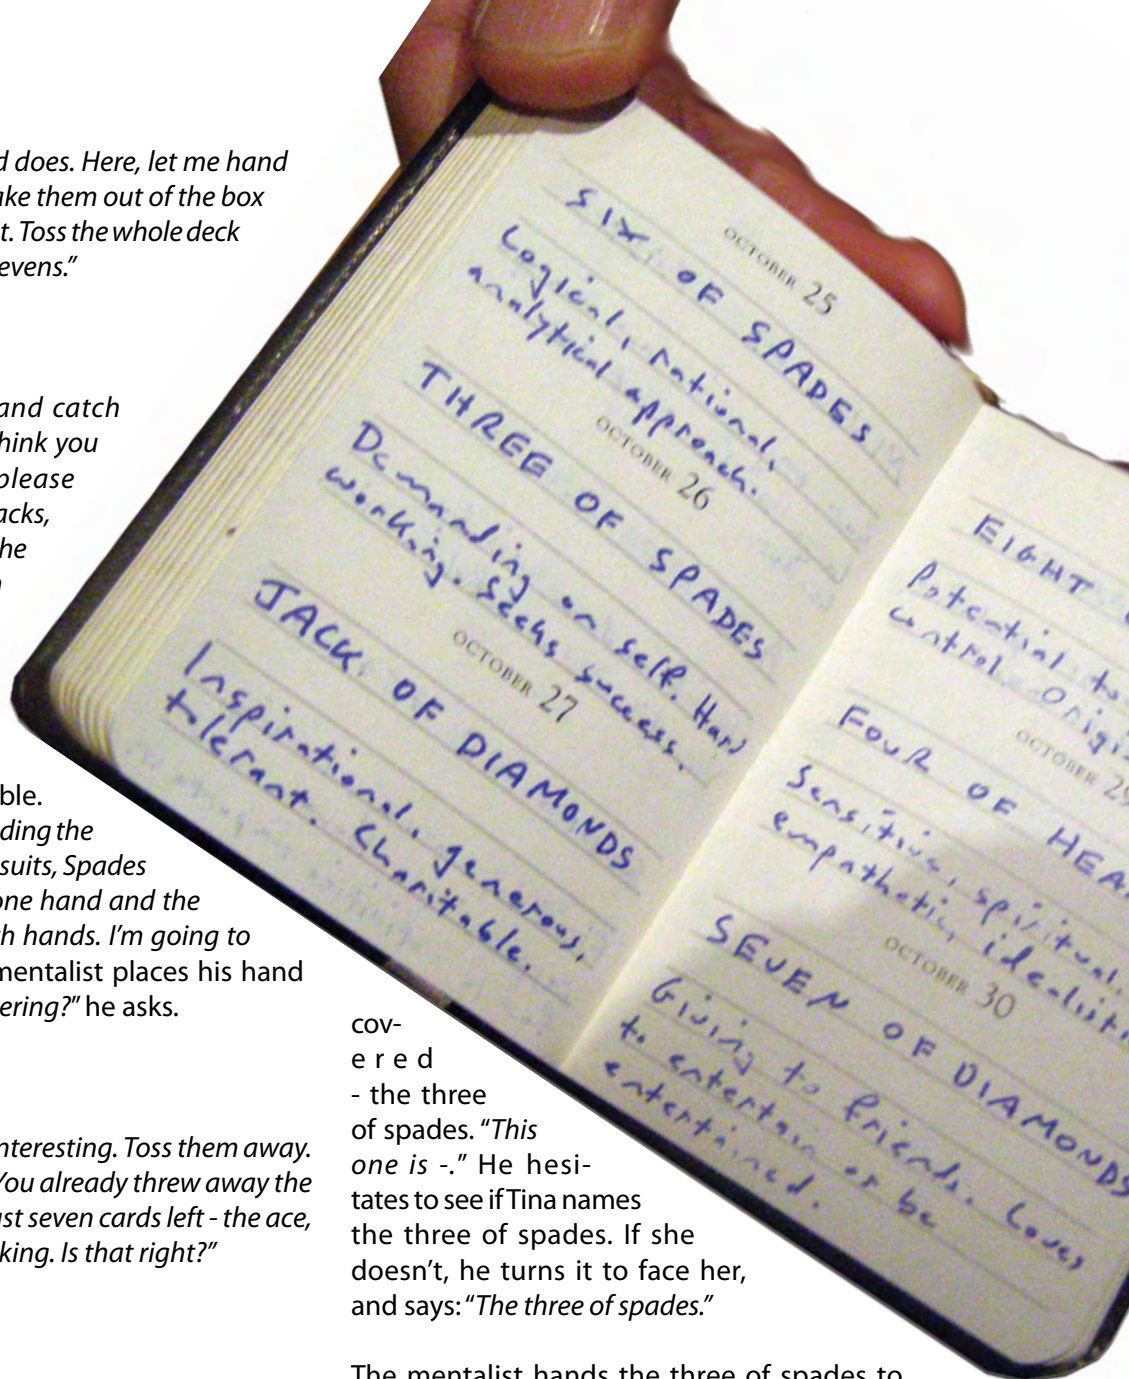 d does. Here, let me hand
ake them out of the box
t. Toss the whole deck
evens."
and catch
hink you
please
acks,
he
ble.
ding the
suits, Spades
one hand and the
h hands. I'm going to
mentalist places his hand
ering?" he asks.
nteresting. Toss them away.
You already threw away the
ust seven cards left - the ace,
king. Is that right?"
cov-
e r e d
- the three
of spades. "This
one is -." He hesi-
tates to see if Tina names
the three of spades. If she
doesn't, he turns it to face her,
and says: "The three of spades."
The mentalist hands the three of spades to
OCTOBER 25
SIX OF SPADES
Logical, rational,
analytical approach.
OCTOBER 26
THREE OF SPADES
Demanding on self. Hard
working. Seeks success.
OCTOBER 27
JACK OF DIAMONDS
Inspirational, generous,
tolerant. Charitable.
EIGHT
Potential to
control. Origi
OCTOBER 29
FOUR OF HEA
Sensitive, spiritual,
empathetic, idealisti
OCTOBER 30
SEVEN OF DIAMONDS
Giving to friends. Loves
to entertain or be
entertained.